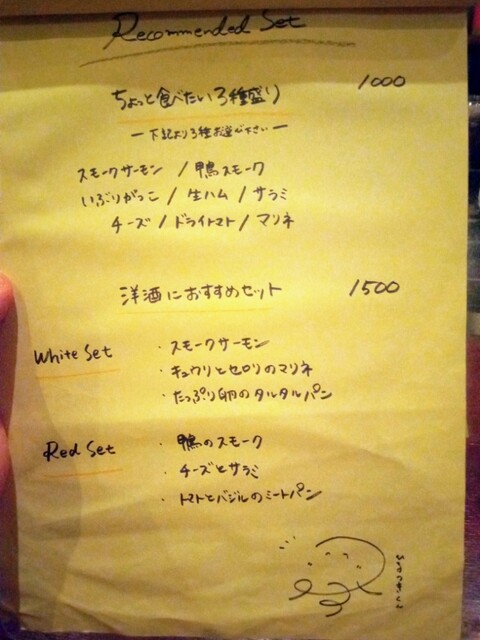 Recommended Set
ちょっと食べたい3種盛り 1000
ー下記より3種お選び下さいー
スモークサーモン / 鴨スモーク
いぶりがっこ / 生ハム / サラミ
チーズ / ドライトマト / マリネ
洋酒におすすめセット 1500
White Set
・スモークサーモン
・キュウリとセロリのマリネ
・たっぷり卵のタルタルパン
Red Set
・鴨のスモーク
・チーズとサラミ
・トマトとバジルのミートパン